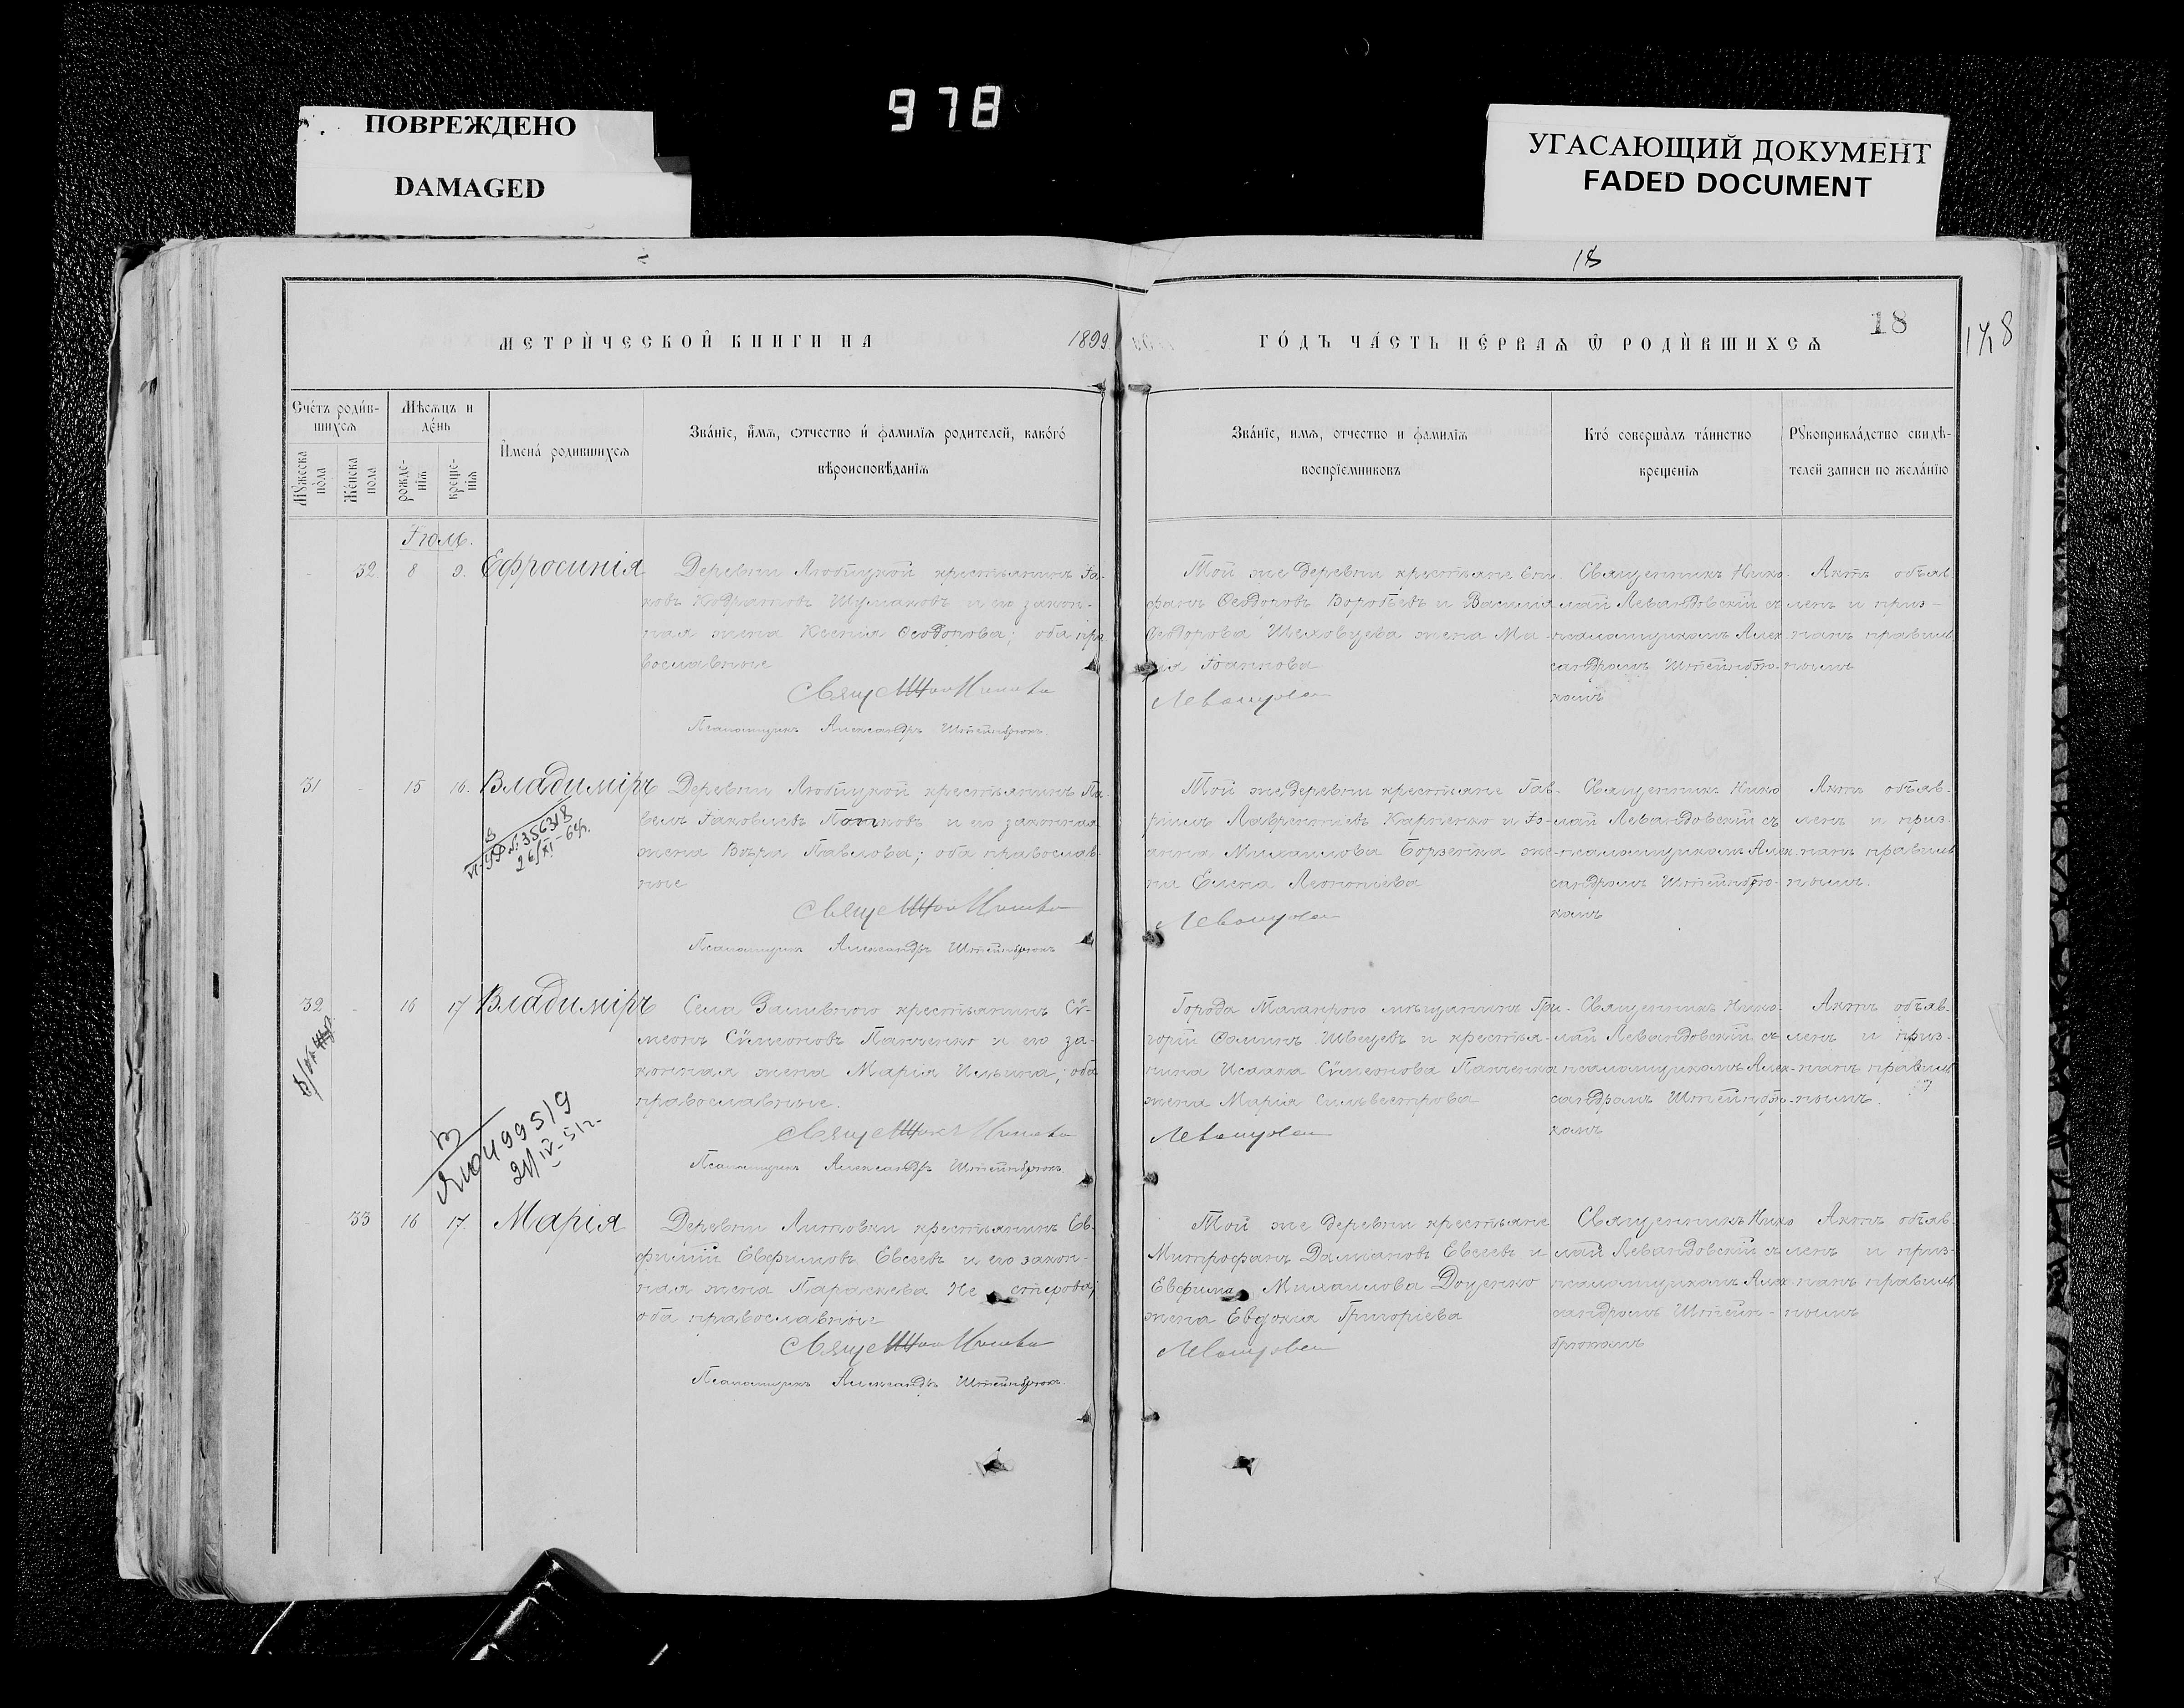 978
ПОВРЕЖДЕНО
DAMAGED
УГАСАЮЩИЙ ДОКУМЕНТ
FADED DOCUMENT
18
МЕТРИ́ЧЕСКОЙ КНИГИ НА 1899
ГО́ДЪ ЧА́СТЬ ПЕ́РВАѦ Ѿ РОДИ́ВШИХСѦ
18
178
Сче́тъ роди́в-
шихсѧ
Мѣсѧцъ и
де́нь
Мꙋжеска
по́ла
Же́нска
пола
рожде-
нїѧ
креще-
нїѧ
И҆мена́ родившихсѧ
Зва́нїе, и҆́мѧ, ѻтчество и҆ фамилїѧ родителей, како́гѡ
вѣроисповѣ́данїѧ
Зва́нїе, имѧ, отчество и фамилїѧ
воспрїемниковъ
Кто́ соверша́лъ та́инство
крещенїѧ
Рꙋкоприкла́дство свидѣ-
телей записи по жела́нїю
Іюль.
32 8 9. Ефросинія
Деревни Любицкой крестьянинъ Іа-
ковъ Кодратовъ Шумаковъ и его закон-
ная жена Ксенія Ѳеодорова; оба пра
вославные
Псаломщикъ Александръ Штейнбрюкъ.
Той же деревни крестьяне Епи-
фанъ Ѳеодоровъ Воробьевъ и Василія
Ѳеодорова Шеховцева жена Ма-
рія Іоаннова
Священникъ Нико-
лай Левандовскій съ
псаломщикомъ Алек-
сандромъ Штейнбрю-
комъ
Актъ объяв-
ленъ и приз-
нанъ правиль
нымъ
31 - 15 16. Владиміръ
В
№ 356318
26/XI-64г.
Деревни Любицкой крестьянинъ Па-
велъ Іаковлевъ Поповъ и его законная
жена Вѣра Павлова; оба православ-
ные
Псаломщикъ Александръ Штейнбрюкъ
Той же деревни крестьяне Гав-
риилъ Лаврентіевъ Карпенко и Іо-
анна Михаилова Борзенка же-
на Елена Леонтіева
Священникъ Нико
лай Левандовскій съ
псаломщикомъ Алек
сандромъ Штейнбрю-
комъ
Актъ объяв-
ленъ и приз-
нанъ правиль
нымъ.
32 - 16 17 Владиміръ
Села Заливного крестьянинъ Сѵ-
меонъ Сѵмеоновъ Панченко и его за-
конная жена Марія Ильина; оба
православные.
Псаломщикъ Александръ Штейнбрюкъ.
Города Таганрога мѣщанинъ Гри-
горій Ѳоминъ Швецевъ и крестья-
нина Исаака Сѵмеонова Панченка
жена Марія Сильвестрова
Священникъ Нико-
лай Левандовскій съ
псаломщикомъ Алек-
сандромъ Штейнбрю-
комъ
Актъ объяв-
ленъ и приз-
нанъ правиль
нымъ.
33 16 17. Марія
Деревни Литовки крестьянинъ Ев-
фимій Евфимовъ Евсеевъ и его закон-
ная жена Параскева Не стерова;
оба православные
Псаломщикъ Александръ Штейнбрюкъ.
Той же деревни крестьяне
Митрофанъ Даміановъ Евсеевъ и
Евфима Михаилова Доценко
жена Евдокія Григоріева
Священникъ Нико
лай Левандовскій съ
псаломщикомъ Алек-
сандромъ Штейн-
брюкомъ
Актъ объяв-
ленъ и приз-
нанъ правиль
нымъ